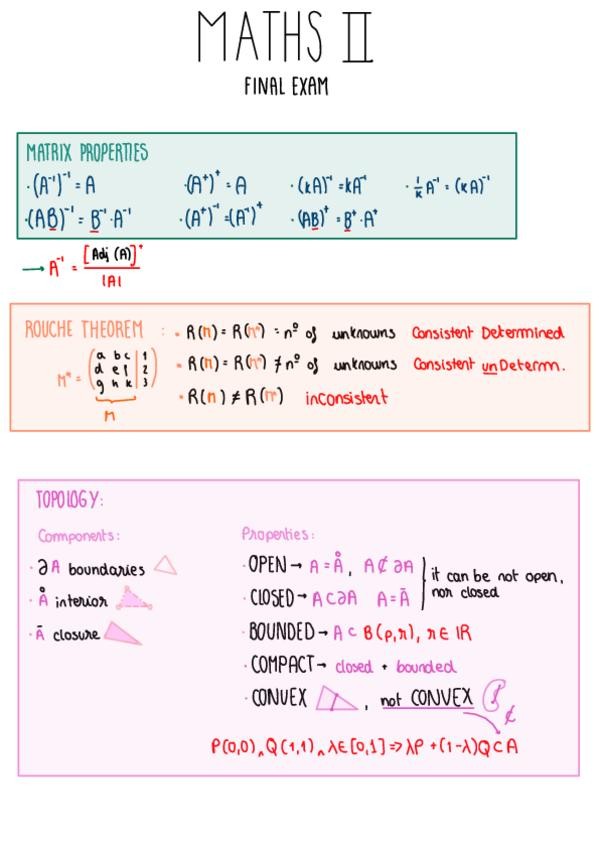 MATHS II
FINAL EXAM
MATRIX PROPERTIES
· (A⁻¹)⁻¹ = A · (A⁺)⁺ = A · (kA)⁻¹ = kA⁻¹ · 1/k A⁻¹ = (kA)⁻¹
· (AB)⁻¹ = B⁻¹ · A⁻¹ · (A⁺)⁻¹ = (A⁻¹)⁺ · (AB)⁺ = B⁺ · A⁺
→ A⁻¹ = [Adj (A)]⁺ / |A|
ROUCHE THEOREM : · R(M) = R(M*) = nº of unknowns Consistent Determined
M* = (a b c | 1
d e f | 2
g h k | 3)
M
· R(M) = R(M*) ≠ nº of unknowns Consistent unDeterm.
· R(M) ≠ R(M*) inconsistent
TOPOLOGY:
Components:
· ∂A boundaries
· Å interior
· Ā closure
Properties:
· OPEN → A = Å, A ⊄ ∂A
· CLOSED → A ⊂ ∂A A = Ā
it can be not open,
nor closed
· BOUNDED → A ⊂ B(p,r), r ∈ IR
· COMPACT → closed + bounded
· CONVEX , not CONVEX
⊄
P(0,0) ^ Q(1,1) ^ λ∈[0,1] => λP + (1-λ)Q ⊂ A